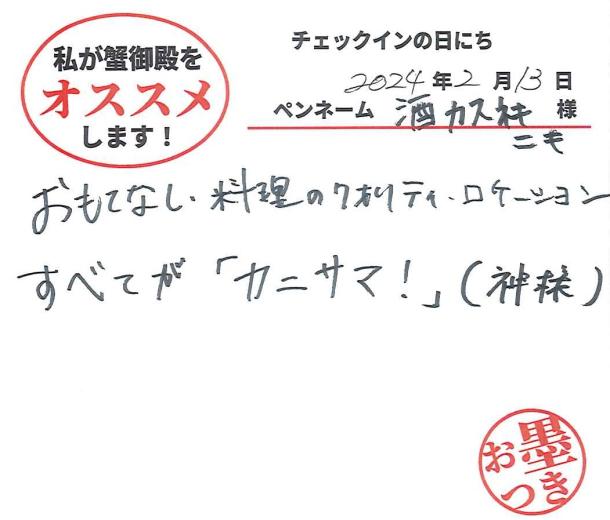 私が蟹御殿を
オススメ
します!
チェックインの日にち
2024年2月13日
ペンネーム 酒カス 様
おもてなし・料理のクオリティ・ロケーション
すべてが「カニサマ!」(神様)
お墨つき